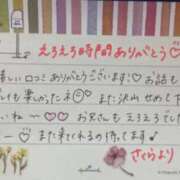 えろえろ時間ありがとう♡
嬉しい口コミありがとうございます♡お話も
とても楽しかったネ また沢山せめて
いな〜♡♡ お兄さんも えろえろで
〜♡また来てくれるの待ってます♪
さくらより